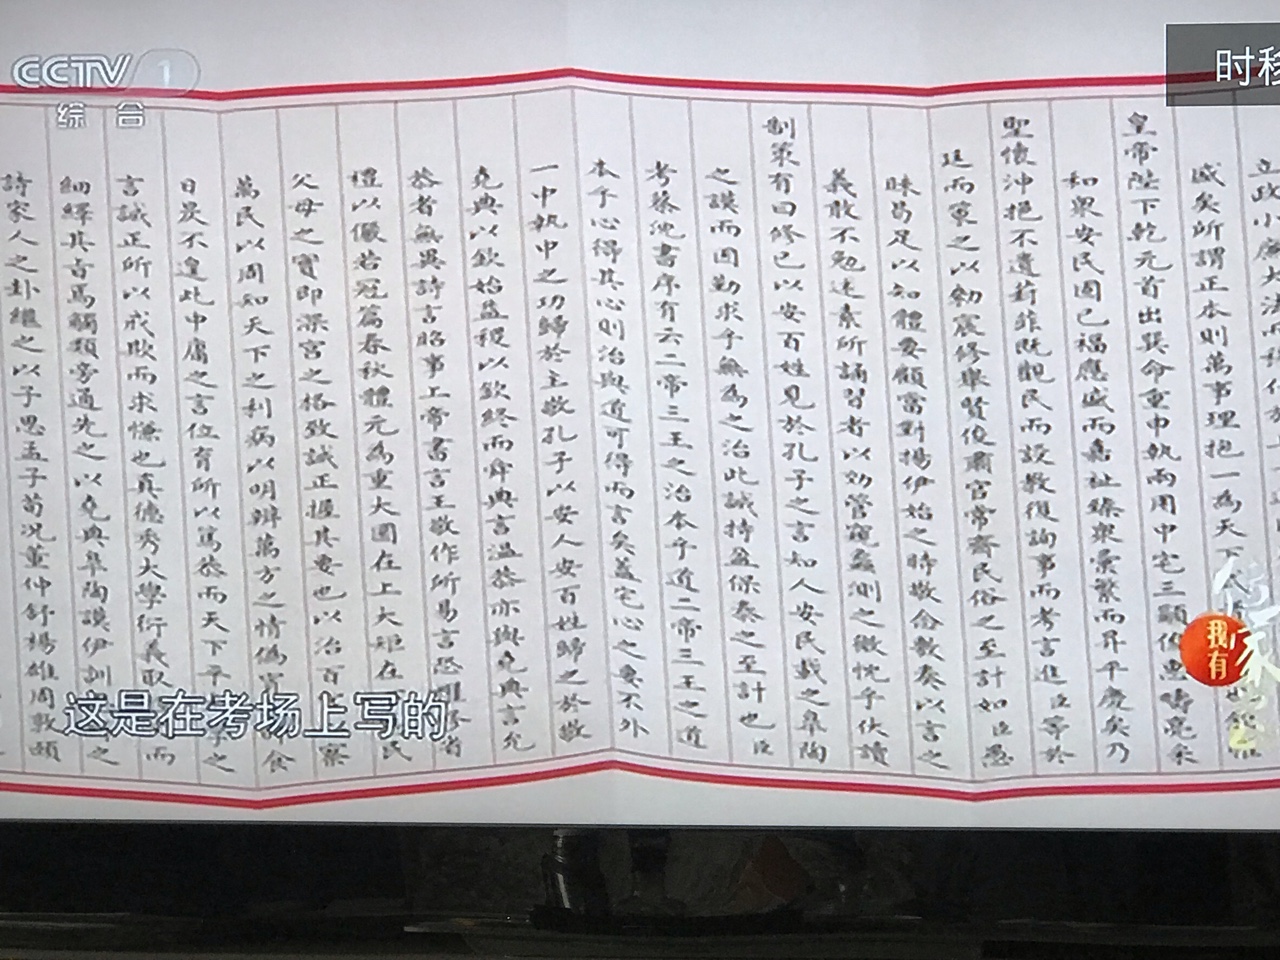 CCTV 1
综合
时移
立政小廉大法而
盛矣所謂正本則萬事理抱一為天下
皇帝陛下乾元首出巽命重申執兩用中宅三顧俊惠疇亮采
和衆安民固已福應盛而嘉祉臻衆彙繁而昇平慶矣乃
聖懷沖挹不遺葑菲既觀民而設教復詢事而考言進臣等於
廷而策之以勑宸修舉賢俊肅官常齊民俗之至計如臣愚
昧曷足以知體要顧當對揚伊始之時敬念敷奏以言之
義敢不勉述素所誦習者以効管窺蠡測之微忱乎伏讀
制策有曰修己以安百姓見於孔子之言知人安民載之皋陶
之謨而因勤求乎無為之治此誠持盈保泰之至計也臣
考蔡沈書序有云二帝三王之治本乎道二帝三王之道
本乎心得其心則治與道可得而言矣蓋宅心之要不外
一中執中之功歸於主敬孔子以安人安百姓歸之於敬
堯典以欽始益稷以欽終而舜典言溫恭亦與堯典言允
恭者無異詩言昭事上帝書言王敬作所易言恐
禮以儼若冠篇春秋體元為重大圜在上大矩在 民
父母之實即深宮之格致誠正握其要也以治百 察
萬民以周知天下之利病以明辨萬方之情偽 食
日昃不遑此中庸之言位育所以篤恭而天下平 之
言誠正所以戒欺而求慊也真德秀大學衍義取 而
細繹其旨焉觸類旁通先之以堯典皋陶謨伊訓 之
詩家人之卦繼之以子思孟子荀況董仲舒揚雄周敦頤
这是在考场上写的
我有